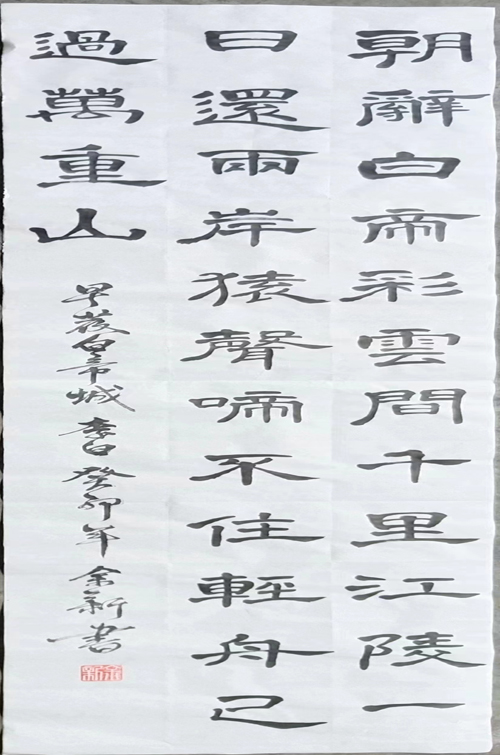 朝辭白帝彩雲間千里江陵一
日還兩岸猿聲啼不住輕舟已
過萬重山
早發白帝城 李白 癸卯年 余新書